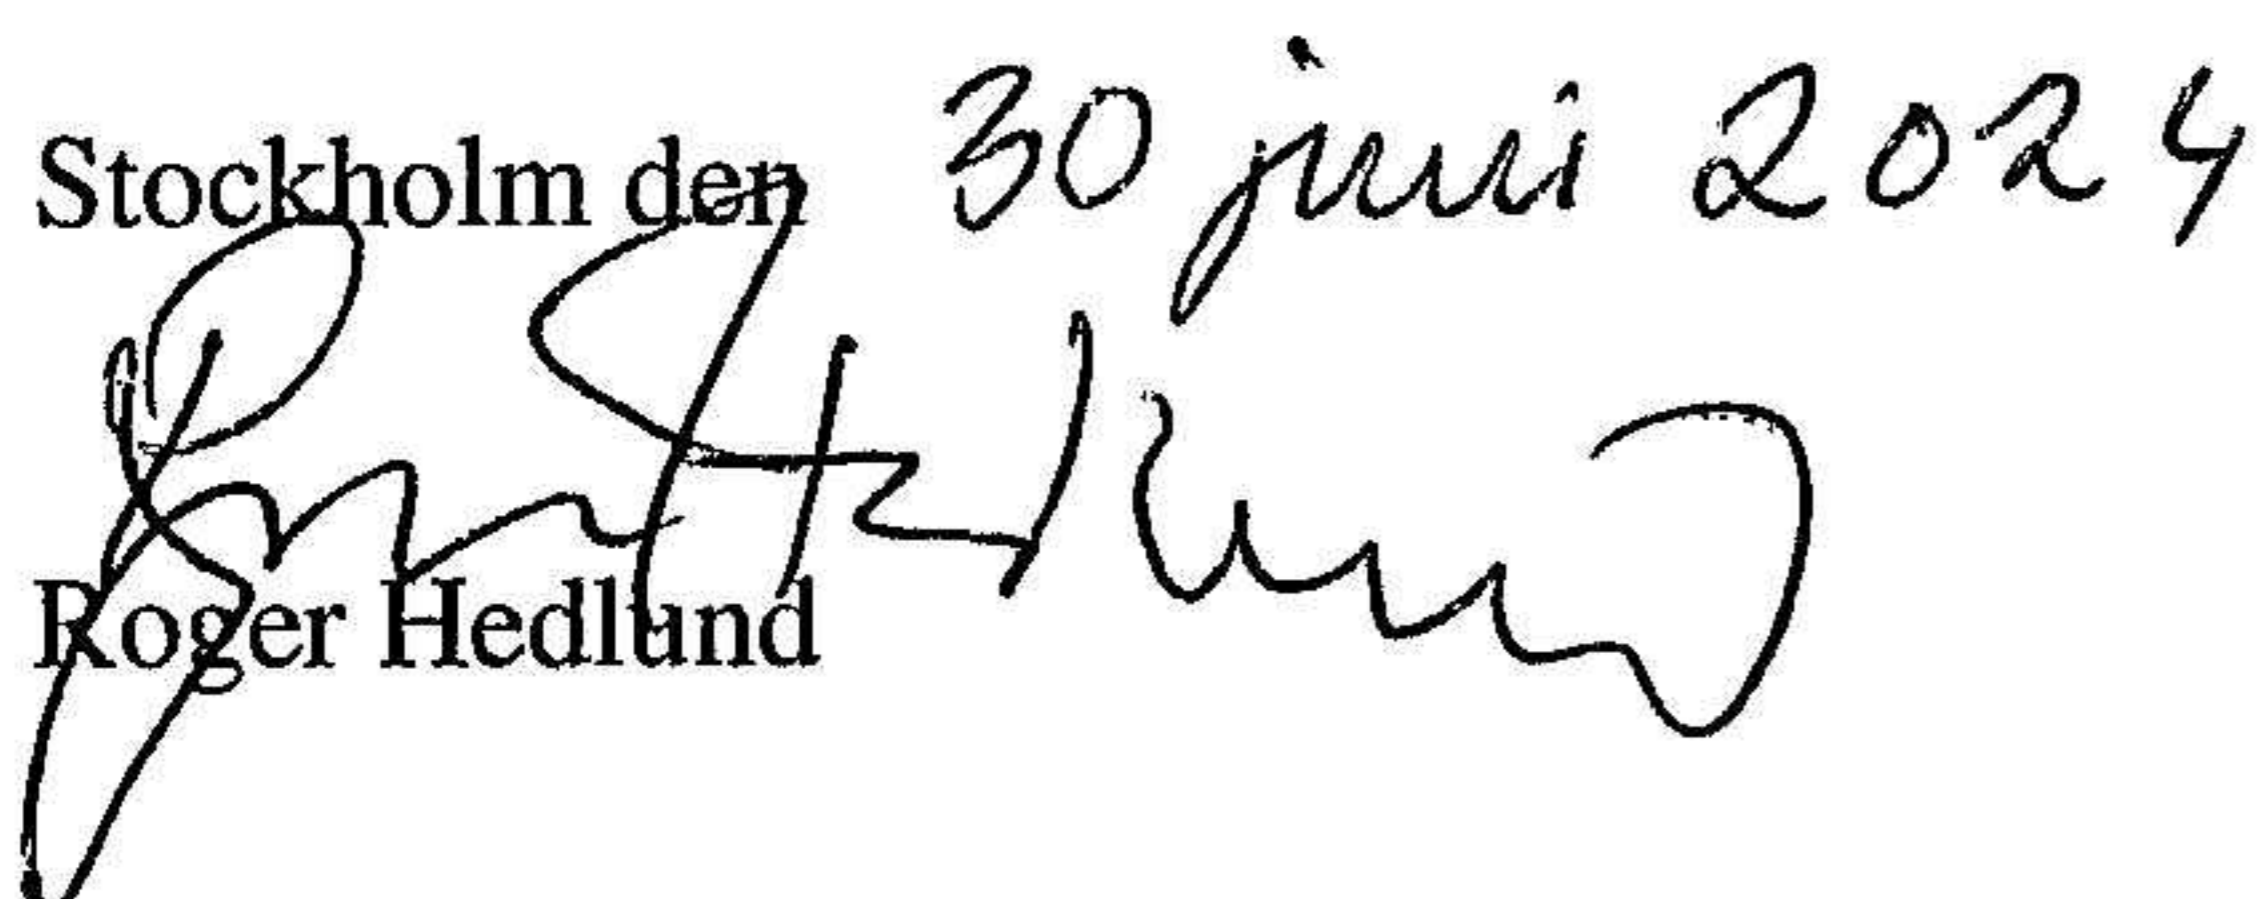 Stockholm den 30 juni 2024
Roger Hedlund